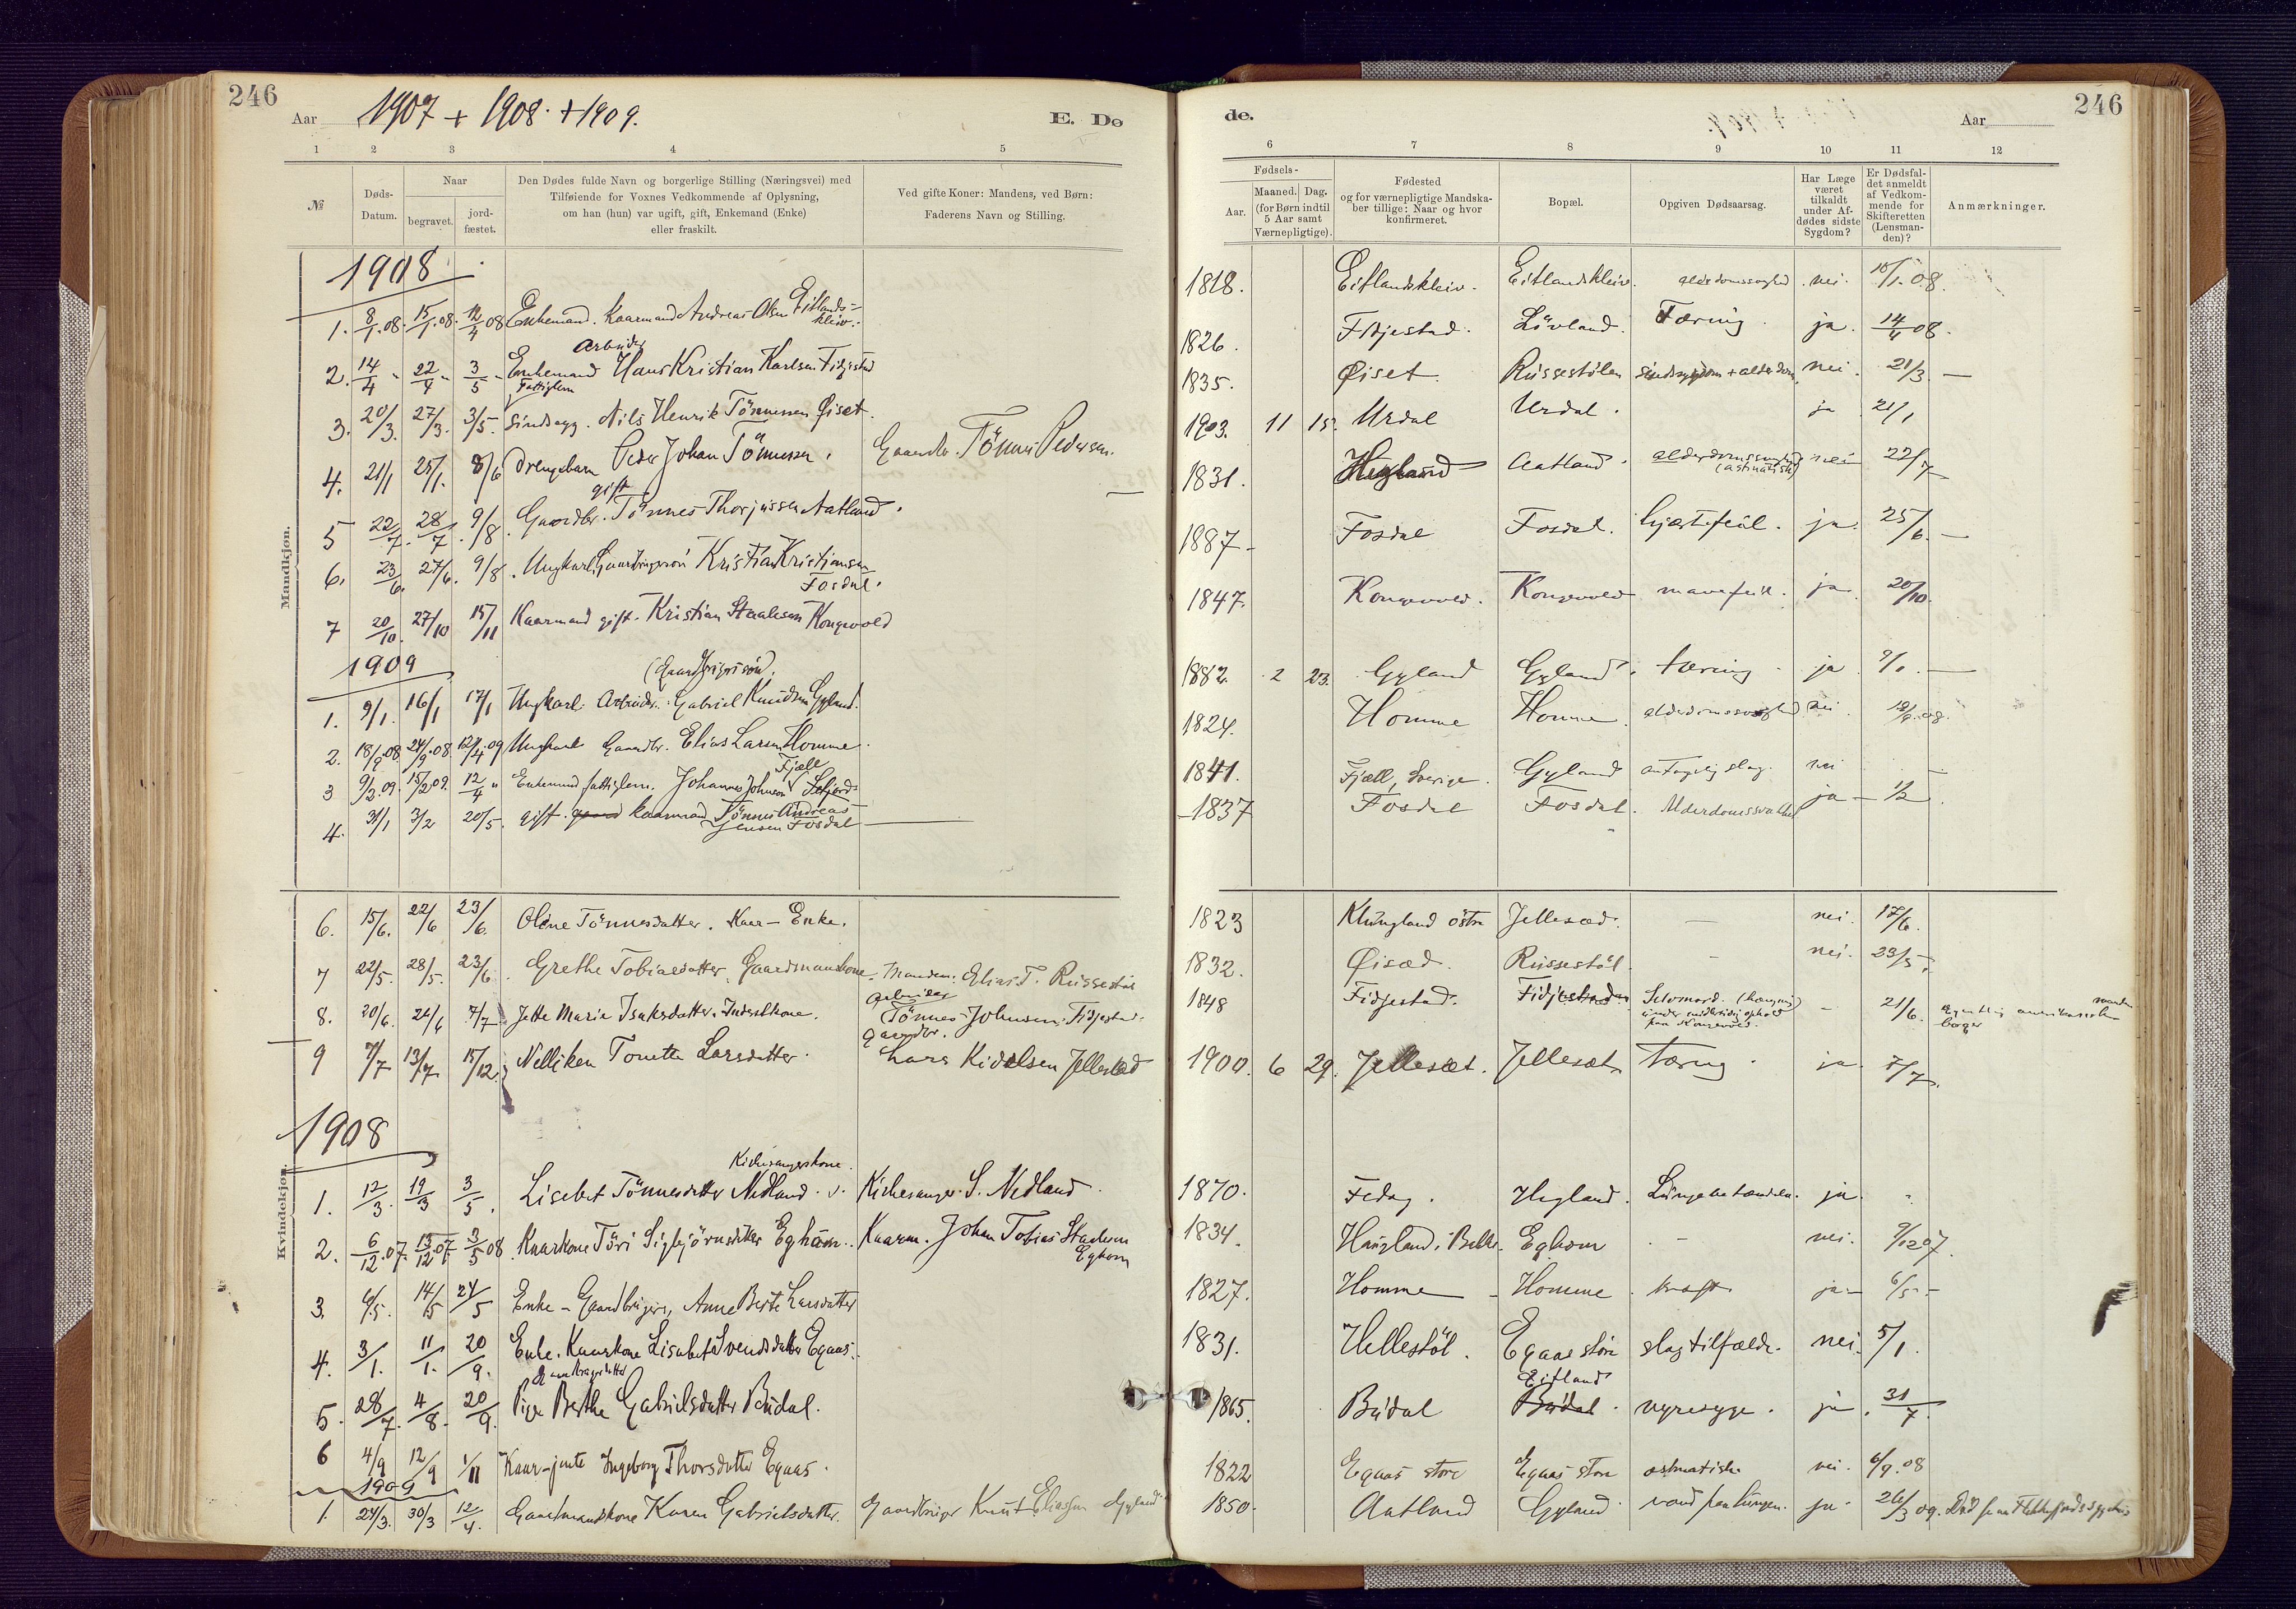 246
Aar 1907 + 1908. + 1909.
E. Dø
1 2 3 4 5
№
Døds-
Datum.
Naar
begravet.
jord-
fæstet.
Den Dødes fulde Navn og borgerlige Stilling (Næringsvei) med
Tilføiende for Voxnes Vedkommende af Oplysning,
om han (hun) var ugift, gift, Enkemand (Enke)
eller fraskilt.
Ved gifte Koner: Mandens, ved Børn:
Faderens Navn og Stilling.
Mandkjøn.
1908
1. 8/1.08. 15/1.08. 12/4 08 Enkemand. Kaarmand Andreas Olsen Eitlands-
kleiv.
Arbeider
2. 14/4 " 22/4 " 3/5 - Enkemand Hans Kristian Karlsen Fidjestad
Fattiglem
3. 20/3. 27/3. 3/5. Sindssyg. Nils Henrik Tönnessen Øiset.
4. 21/1 25/1. 8/6 Drengebarn Peder Johan Tönnessen. Gaardbr. Tönnes Pedersen.
gift
5 22/7. 28/7. 9/8. Gaardbr. Tönnes Thorjussen Aatland.
6. 23/6. 27/6. 9/8. Ungkarl, Gaardbrugersön Kristian Kristiansen
Fosdal.
7 20/10. 27/10 15/11 Kaarmand gift. Kristian Staalesen Kongevold
1909
(Gaardbrugersön.
1. 9/1. 16/1 17/1 Ungkarl. Arbeider. Gabriel Knudsen Gyland.
2. 18/9.08 24/9.08 12/4.09 Ungkarl Gaardbr. Elias Larsen Homme.
Fjæll
3 9/2.09. 15/2.09. 12/4 " Enkemand fattiglem. Johannes Johnsen
4. 31/1 3/2 20/5. gift. Kaarmand Tönnes Andreas
Jensen Fosdal
6. 15/6. 22/6 23/6. Olene Tönnesdatter. Kaar-Enke.
7 22/5. 28/5. 23/6. Grethe Tobiasdatter, Gaardmandskone. Manden: Elias T. Russestöl
Arbeider
8. 20/6. 24/6 7/7. Jette Maria Isaksdatter. Tönnes Johnsen Fidjestad.
Gaardbr.
9 7/7 13/7 15/12. Nelliken Tonette Larsdatter. Lars Kidelsen Jellesæd
Kvindekjøn.
1908
Kirkesangerskone.
1. 12/3. 19/3 3/5. Lisebet Tönnesdatter Nedland. Kirkesanger. S. Nedland.
2. 6/12.07. 13/12.07 3/5 08. Kaarkone Töri Sigbjörnsdatter Eghom. Kaarm. Johan Tobias Staalesen
Eghom
3. 6/5. 14/5 24/5 Enke - Gaardbruger, Anne Berte Larsdatter
4. 3/1. 11/1. 20/9. Enke. Kaarkone Lisabet Svendsdatter Egaas.
Gaardbrugerdatter
5. 28/7. 4/8. 20/9. Pige Berthe Gabrielsdatter Búdal.
6 4/9 12/9 1/11 Kaar-jente Ingeborg Thorsdatter Egaas.
1909
1. 24/3. 30/3 12/4. Gaardmandskone Karen Gabrielsdatter. Gaardbruger Knut Eliassen Gyland
de.
Aar
246
6 7 8 9 10 11 12
Fødsels-
Aar.
Maaned. Dag.
(for Børn indtil
5 Aar samt
Værnepligtige).
Fødested
og for værnepligtige Mandska-
ber tillige: Naar og hvor
konfirmeret.
Bopæl.
Opgiven Dødsaarsag.
Har Læge
været
tilkaldt
under Af-
dødes sidste
Sygdom?
Er Dødsfal-
det anmeldt
af Vedkom-
mende for
Skifteretten
(Lensman-
den)?
Anmærkninger.
1818. Eitlandskleiv. Eitlandskleiv. alderdomssvaghed. nei. 10/1.08.
1826. Fidjestad. Lövland. Tæring. ja. 14/4 08.
1835. Øiset. Russestölen Sindssygdom + alderdom. nei. 21/3.
1903. 11 15. Urdal Urdal. ja 21/1
1831. Hægland Aatland. alderdomssvaghed
(astmatisk) nei 22/7
1887. Fosdal Fosdal. hjertefeil. ja. 25/6.
1847. Kongevold. Kongevold mavefeil. ja. 20/10.
1882. 2 23. Gyland Gyland. tæring. ja 9/1.
1824. Homme Homme. alderdomssvaghed nei. 18/9.08.
1841. Fjæll, Sverige. Gyland antagelig slag. nei
1837 Fosdal Fosdal. Alderdomssvakhet ja 1/2
1823 Klungland östre Jellesæd. – nei. 17/6.
1832. Øisæd. Russestöl. – nei. 23/5.
1848 Fidjestad. Fidjestad Selvmord. (hængning)
under midlertidig ophold
paa Kongevold. – 21/6.
1900. 6 29. Jellesæt. Jellesæt. Tæring. ja. 7/7.
1870. Fedag. Hægland. Lungebetændelse. ja.
1834. Haugland, Bakke. Eghom – nei. 9/12 07.
1827. Homme – Homme. kræft. ja – 6/5.
1831. Hellestöl. Egaas store slagtilfælde. nei. 5/1.
Eitland
1865. Búdal Búdal. nyresyge. ja. 31/7.
1822 Egaas store Egaas store astmatisk nei. 6/9.08
1850. Aatland Gyland. vand paa lungen. ja. 26/3 09. Död paa Flekkefjords sygehus